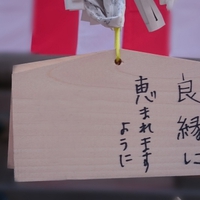 良縁に
恵まれます
ように